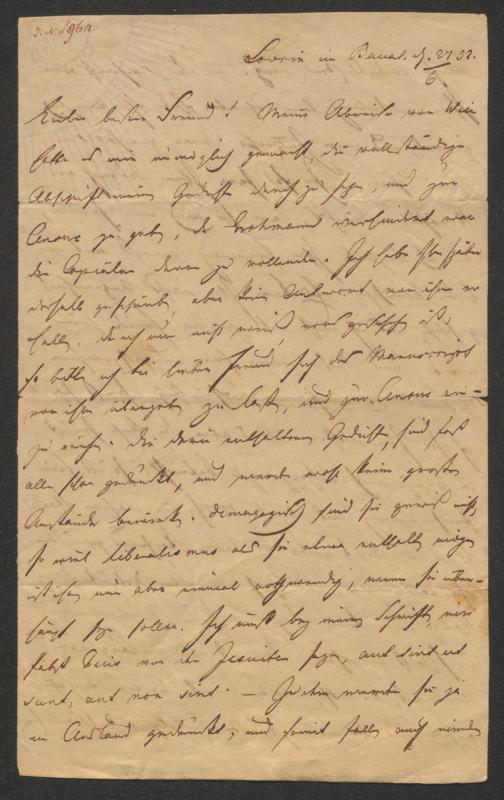 J.N. 8960
Lovrin im Banat. d. 27/6 32.
Lieber bester Freund! Meine Abreise von Wien
hatte es mir unmöglich gemacht, die vollständige
Abschrift meiner Gedichte durch zu sehen, und zur
Censur zu geben, da Grohmann verhindert war
die Copiatur derer zu vollenden. Ich habe ihm später
deshalb geschrieben, aber keine Antwort von ihm er
halten. da ich nun nicht weiß, was geschehen ist,
so bitte ich Sie lieber Freund sich das Manuscript
von ihm übergeben zu lassen, und zur Censur ein-
zu reichen. die darin enthaltenen Gedichte, sind fast
alle schon gedruckt, und werden wohl keine großen
Anstände bewirken. demagogisch sind sie gewiß nicht,
so viel liberalismus als sie etwa enthalten mögen
ist ihnen nun aber einmal nothwendig, wenn sie über-
haupt seyn sollen. Ich muß bey meinen Schriften, wie
Pabst von den Jesuiten sagen, aut sint ut
sunt, aut non sint. — Zudem werden sie ja
im Ausland gedruckt, und somit fallen auch